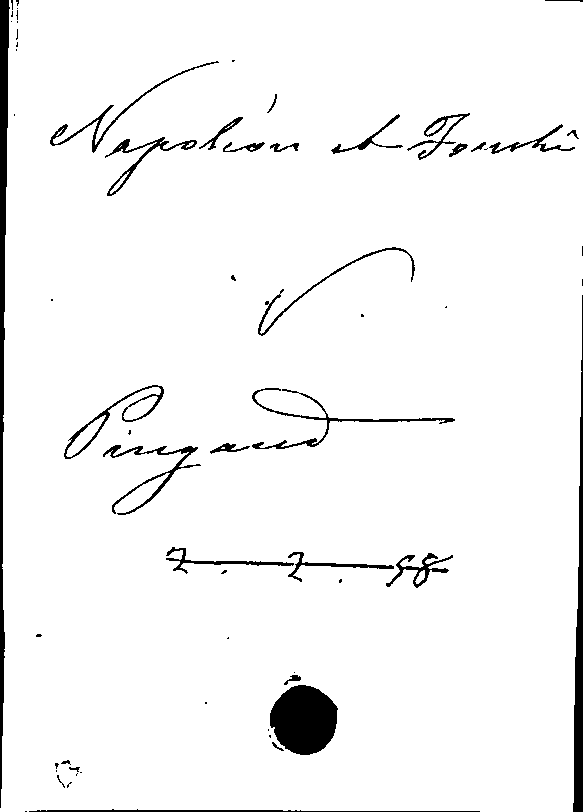 Napoléon et Fouché
V.
Pingaud